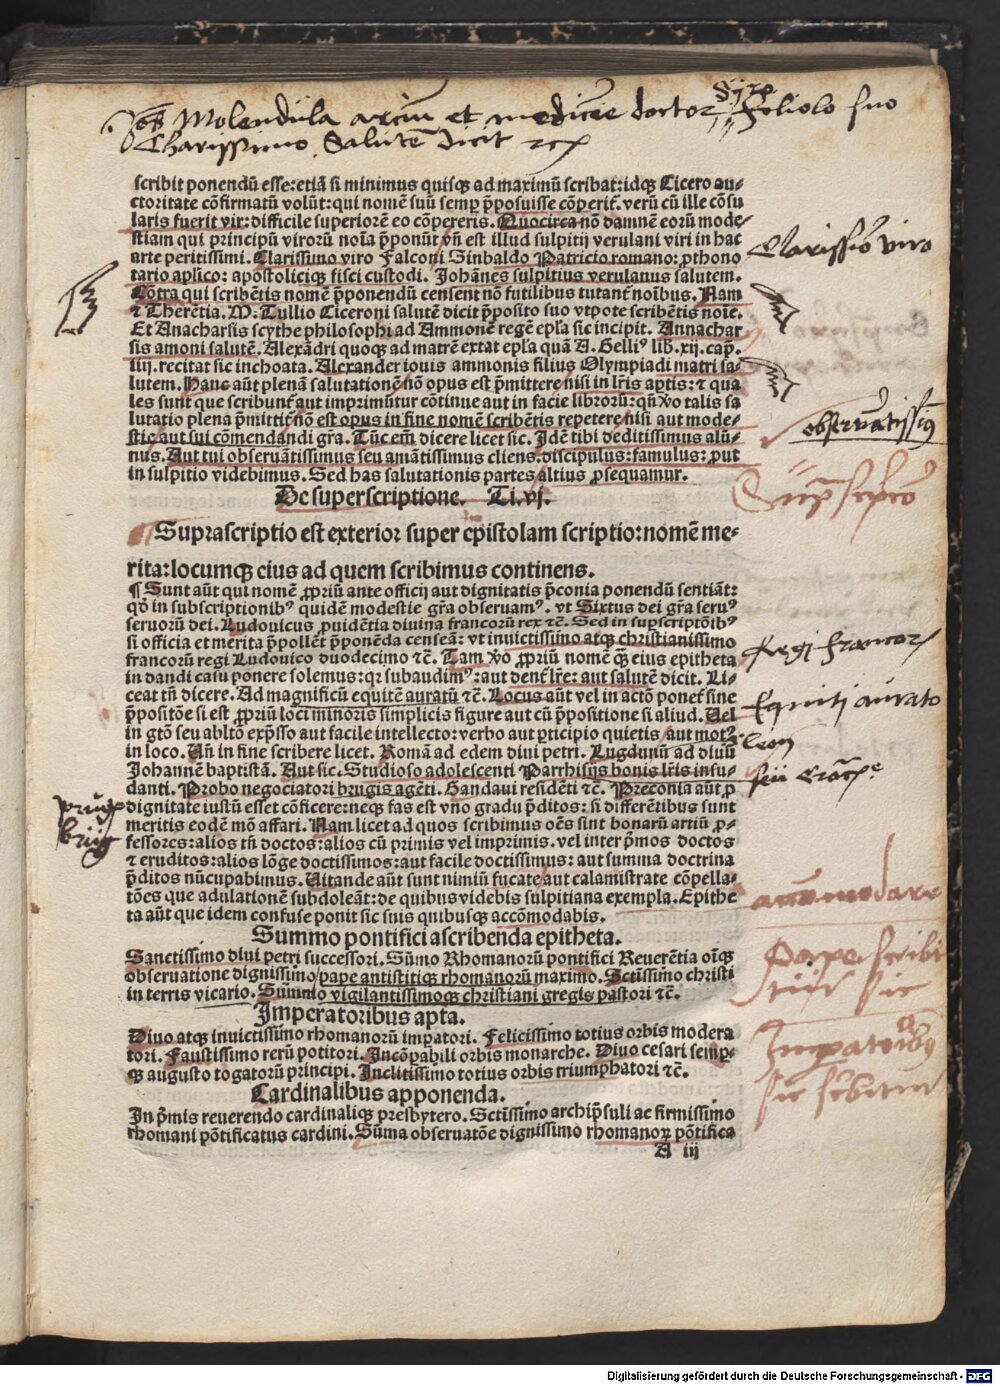 Jo͞es Molendula arciū et medicīe doctor Syxo filiolo suo
Charissimo Salutē dicit ꝛcꝫ
scribit ponendū esse: etiā si minimus quisqꝫ ad maximū scribat: idqꝫ Cicero au⸗
ctoritate cōfirmatū volūt: qui nomē suū semꝑ p̄posuisse cōperit̄. verū cū ille cōsu
laris fuerit vir: difficile superiorē eo cōpereris. Quocirca nō damnē eorū mode⸗
stiam qui principū virorū noīa p̄ponūt. Vn̄ est illud sulpitij verulani viri in hac
arte peritissimi. Clarissimo viro Falconi Sinbaldo Patricio romano: ꝓthono
tario apl̄ico: apostoliciqꝫ fisci custodi. Johānes sulpitius verulanus salutem.
Cōtra qui scribētis nomē p̄ponendū censent nō futilibus tutant̄ noībus. Nam
⁊ Therētia. M. Tullio Ciceroni salutē dicit p̄posito suo vtpote scribētis noīe.
Et Anacharsis scythe philosophi ad Ammonē regē epl̄a sic incipit. Annachar
sis amoni salutē. Alexādri quoqꝫ ad matrē extat epl̄a quā A. Gelliꝰ lib. xij. cap.
iiij. recitat sic inchoata. Alexander iouis ammonis filius Olympiadi matri sa⸗
lutem. Hanc aūt plenā salutationē nō opus est p̄mittere nisi in lr̄is aptis: ⁊ qua
les sunt que scribunt̄ aut imprimūtur cōtinue aut in facie librorū: qn̄ v̄o talis sa
lutatio plena p̄mittit̄ nō est opus in fine nomē scribētis repetere nisi aut mode⸗
stie aut sui cōmendandi gr̄a. Tūc em̄ dicere licet sic. Idē tibi deditissimus alū⸗
nus. Aut tui obseruātissimus seu amātissimus cliens. discipulus: famulus: ꝓut
in sulpitio videbimus. Sed has salutationis partes altius ꝓsequamur.
De superscriptione. Ti. vj.
Suprascriptio est exterior super epistolam scriptio: nomē me⸗
rita: locumqꝫ eius ad quem scribimus continens.
¶ Sunt aūt qui nomē ꝓpriū ante officij aut dignitatis p̄conia ponendū sentiāt:
qđ in subscriptionibꝰ quidē modestie gr̄a obseruamꝰ. vt Sixtus dei gr̄a seruꝰ
seruorū dei. Ludouicus ꝓuidētia diuina francorū rex ⁊c̄. Sed in suꝑscriptōibꝰ
si officia et merita p̄pollēt p̄ponēda censeā: vt inuictissimo atqꝫ christianissimo
francorū regi Ludouico duodecimo ⁊c̄. Tam v̄o ꝓpriū nomē q̄ꝫ eius epitheta
in dandi casu ponere solemus: qꝛ subaudimꝰ: aut dent̄ lr̄e: aut salutē dicit. Li⸗
ceat tn̄ dicere. Ad magnificū equitē auratū ⁊c̄. Locus aūt vel in actō ponet̄ sine
p̄positōe si est ꝓpriū loci minoris simplicis figure aut cū p̄positione si aliud. Vel
in gtō seu abltō exp̄sso aut facile intellecto: verbo aut ꝑticipio quietis aut motꝰ
in loco. Vn̄ in fine scribere licet. Romā ad edem diui petri. Lugdunū ad diuū
Johannē baptistā. Aut sic. Studioso adolescenti Parrhisijs bonis lr̄is insu⸗
danti. Probo negociatori brugis agēti. Gandaui residēti ⁊c̄. Preconia aūt ꝓ
dignitate iustū esset cōficere: neqꝫ fas est vno gradu p̄ditos: si differētibus sunt
meritis eodē mō affari. Nam licet ad quos scribimus oēs sint bonarū artiū ꝓ⸗
fessores: alios tn̄ doctos: alios cū primis vel imprimis. vel inter p̄mos doctos
⁊ eruditos: alios lōge doctissimos: aut facile doctissimus: aut summa doctrina
p̄ditos nūcupabimus. Vitande aūt sunt nimiū fucate aut calamistrate cōpella⸗
tōes que adulationē subdoleāt: de quibus videbis sulpitiana exempla. Epithe
ta aūt que idem confuse ponit sic suis quibusqꝫ accōmodabis.
Summo pontifici ascribenda epitheta.
Sanctissimo diui petri successori. Sūmo Rhomanorū pontifici Reuerētia oīqꝫ
obseruatione dignissimo/ pape antistitiqꝫ rhomanorū maximo. Sctīssimo christi
in terris vicario. Sūmo vigilantissimoqꝫ christiani gregis pastori ⁊c̄.
Imperatoribus apta.
Diuo atqꝫ inuictissimo rhomanorū imꝑatori. Felicissimo totius orbis modera
tori. Faustissimo rerū potitori. Incōꝑabili orbis monarche. Diuo cesari semꝑ⸗
qꝫ augusto togatorū principi. Inclitissimo totius orbis triumphatori ⁊c̄.
Cardinalibus apponenda.
In p̄mis reuerendo cardinaliqꝫ presbytero. Sctīssimo archip̄suli ac firmissimo
rhomani pōtificatus cardini. Sūma obseruatōe dignissimo rhomanoꝝ pōtifica
A iij
Clarissīo viro
obseruātissiꝰ
Sup̄scriptio
Regi francoꝝ
Equiti aurato
accōmodare
Pape scribi
tur sic
Imꝑatoribꝰ
sic scribitur
Digitalisierung gefördert durch die Deutsche Forschungsgemeinschaft - DFG